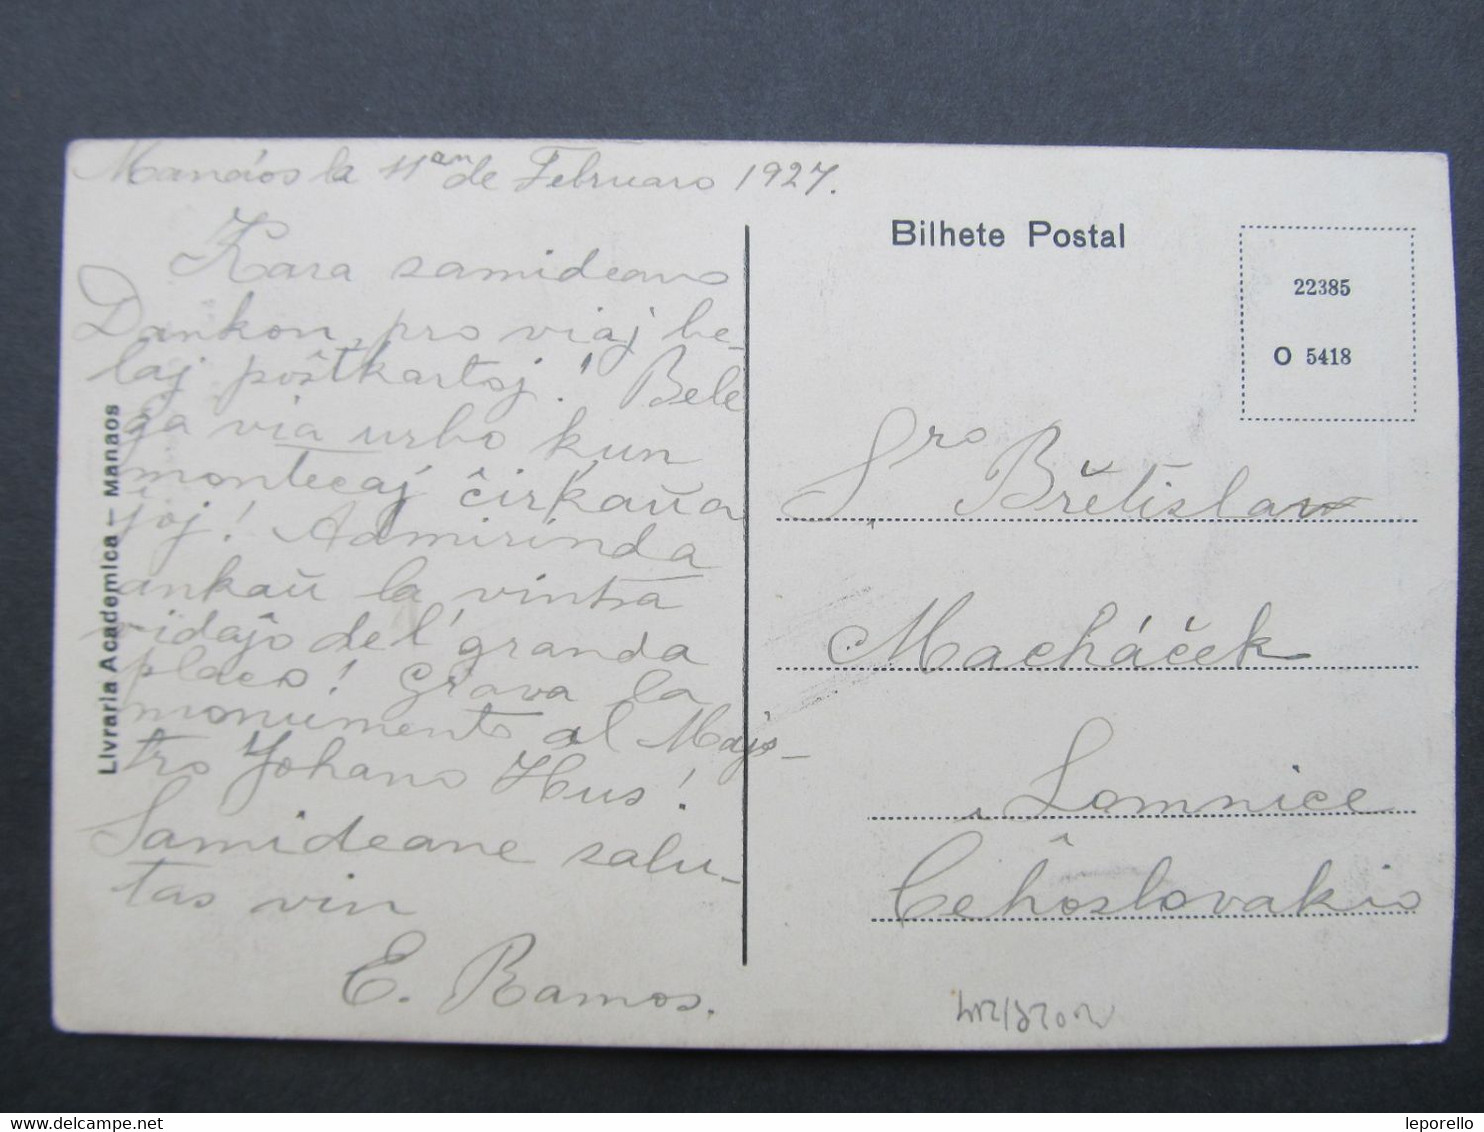 Manáos la 11an de Februaro 1927.
Kara samideano
Dankon, pro viaj be-
laj poŝtkartoj! Bele
ga via urbo kun
montecaj ĉirkaŭa
joj! Admirinda
ankaŭ la vintra
vidaĵo de l' granda
placo! Grava la
monumento al Maĵs-
tro Johano Hus!
Samideane salu-
tas vin
E. Ramos.
Livraria Academica - Manaos
Bilhete Postal
22385
O 5418
Sro Břetislav
Macháček
Lomnice
Ĉeĥoslovakio
leporello